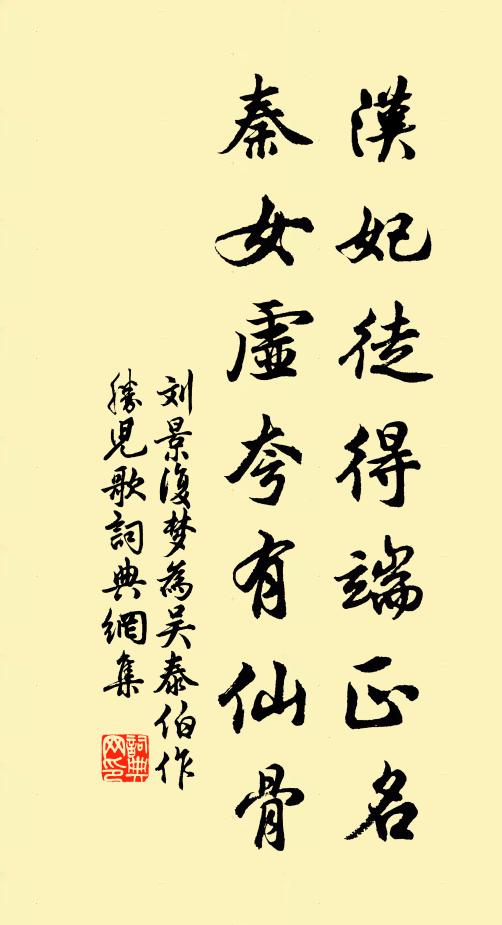 漢妃徒得端正名
秦女虛夸有仙骨
刘景復梦為吴泰伯作
勝児歌詞典網集
詞典
网印